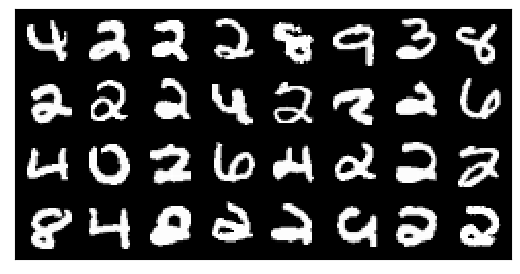 4 2 2 2 8 9 3 8
2 2 2 4 2 2 2 6
4 0 2 6 4 2 2 2
8 4 2 2 2 9 2 2